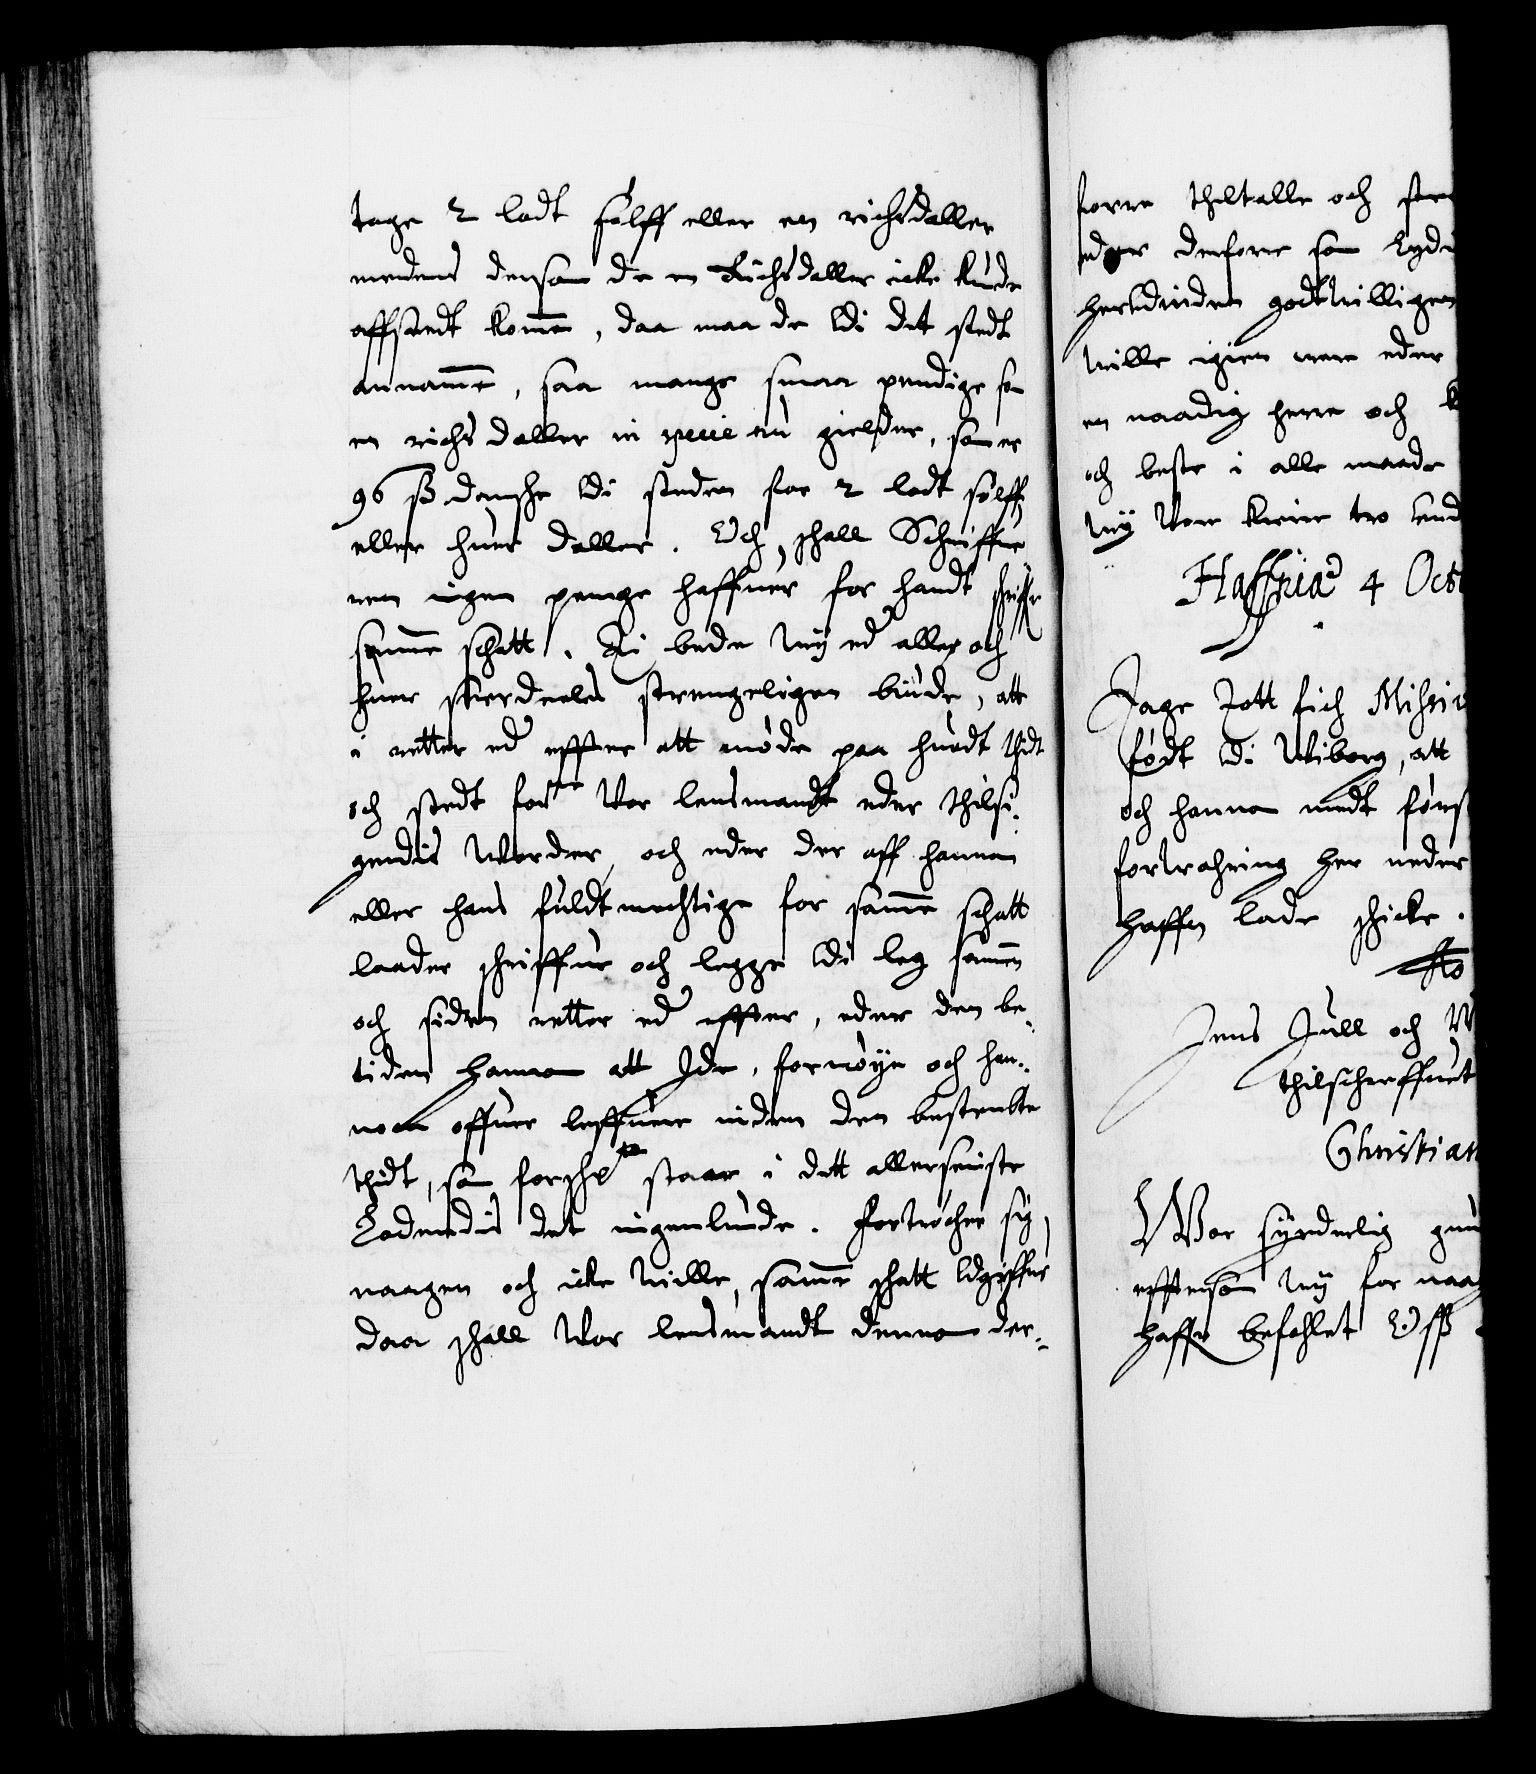 tage 2 lodt sølff eller en richsdaller
medens dersom de en Richsdaller icke kunde
affstedt komme, daa maa de Wdi det stedt
annamme, saa mange smaa pendige som
en richsdaller in specie nu gielder, som er
96 ß danske Wdi steden for 2 lodt sølff
eller huer daller. Och schall Schriffue
ren ingen penge haffuer for handt schriffe
samme schatt. Thi bede wy ed alle och
huer serdeelis strengeligen biude, att
i retter ed effter att møde paa huadt thidt
och stedt for Vor lensmandt eder thilsi-
gendis Worder, och eder der aff hannom
eller hans fuldtmechtige for samme schatt
laader schriffue och legge Wdi leg sammen
och siden retter ed effter, eder den be-
tiden hannom att Yde, fornøye och han-
nom offuer leffuere inden den bestembte
thidt, som forschreffne staar i dett allerseniste
Ladendis det ingenlunde. Fortrøcher sig
naagen och icke wille, samme schatt Udgiffue
daa schall Vor lensmandt dennom der-
forre thiltalle och
eder derforre som
herudinden godtwilligen
wille igien were eder
en naadig herre och
och beste i alle maade
wy Vor
Haffniæ 4 Oct
Jage Jott fich Missiv
født Wdi Wiborg, att
och hannom medt først
forwahring her neder
haffn lade schicke.
Jens Jull och
thilscreffuet
Christian
Wor synderlig gun
effterson wy for naag
haffe befahlet Off